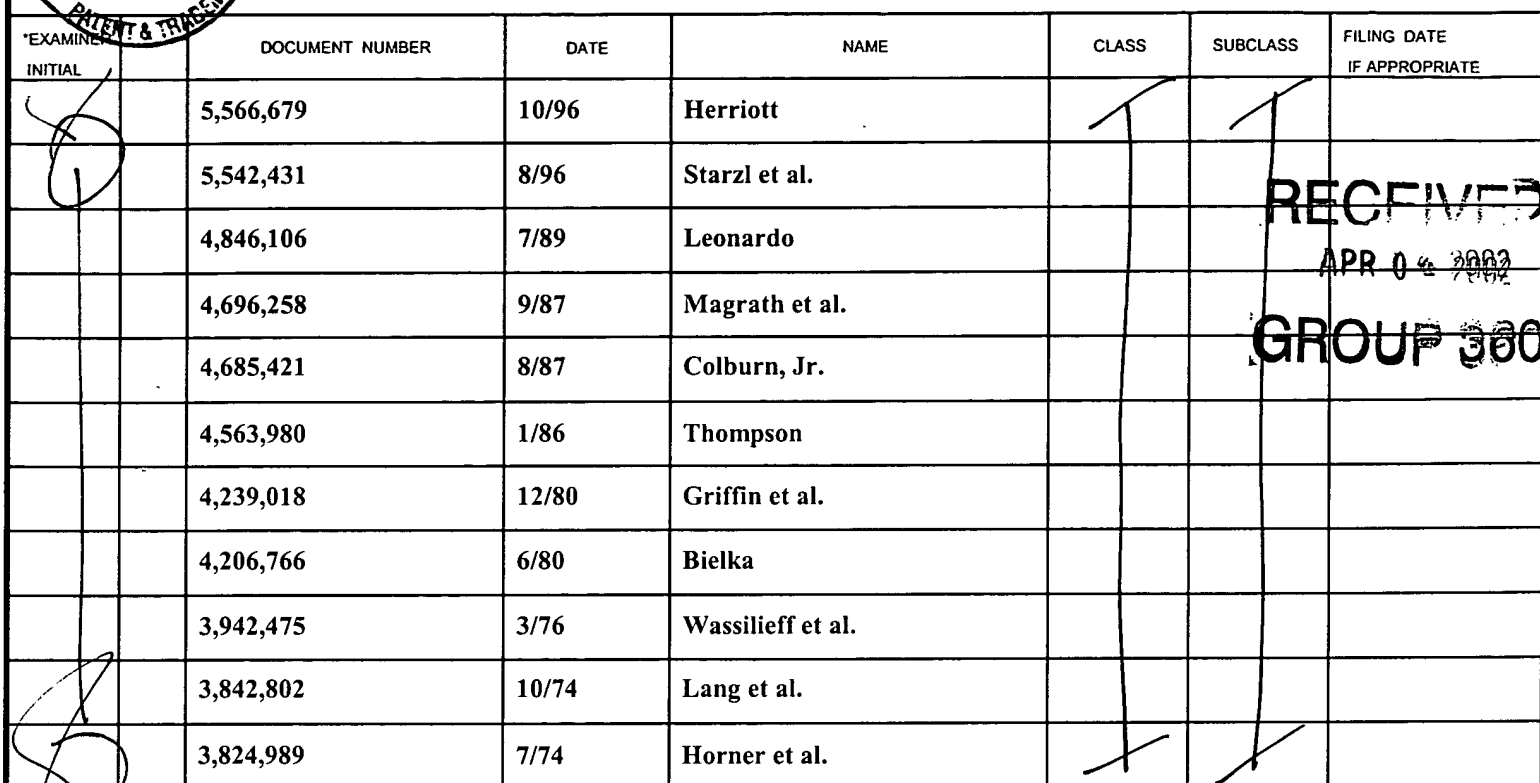 PATENT & TRADEM
*EXAMINER INITIAL DOCUMENT NUMBER DATE NAME CLASS SUBCLASS FILING DATE IF APPROPRIATE
5,566,679 10/96 Herriott
5,542,431 8/96 Starzl et al.
RECEIVED
4,846,106 7/89 Leonardo
APR 04 2002
4,696,258 9/87 Magrath et al.
GROUP 360
4,685,421 8/87 Colburn, Jr.
4,563,980 1/86 Thompson
4,239,018 12/80 Griffin et al.
4,206,766 6/80 Bielka
3,942,475 3/76 Wassilieff et al.
3,842,802 10/74 Lang et al.
3,824,989 7/74 Horner et al.